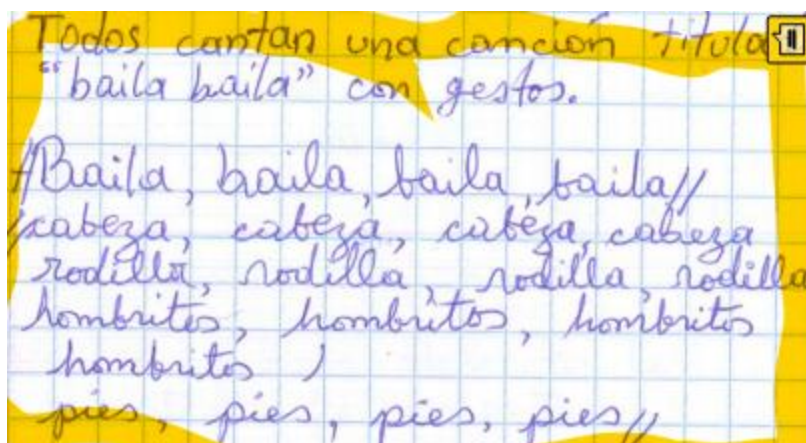 Todos cantan una canción titula
“baila baila” con gestos.
//Baila, baila, baila, baila//
//cabeza, cabeza, cabeza, cabeza
rodilla, rodilla, rodilla, rodilla
hombritos, hombritos, hombritos
hombritos,
pies, pies, pies, pies//